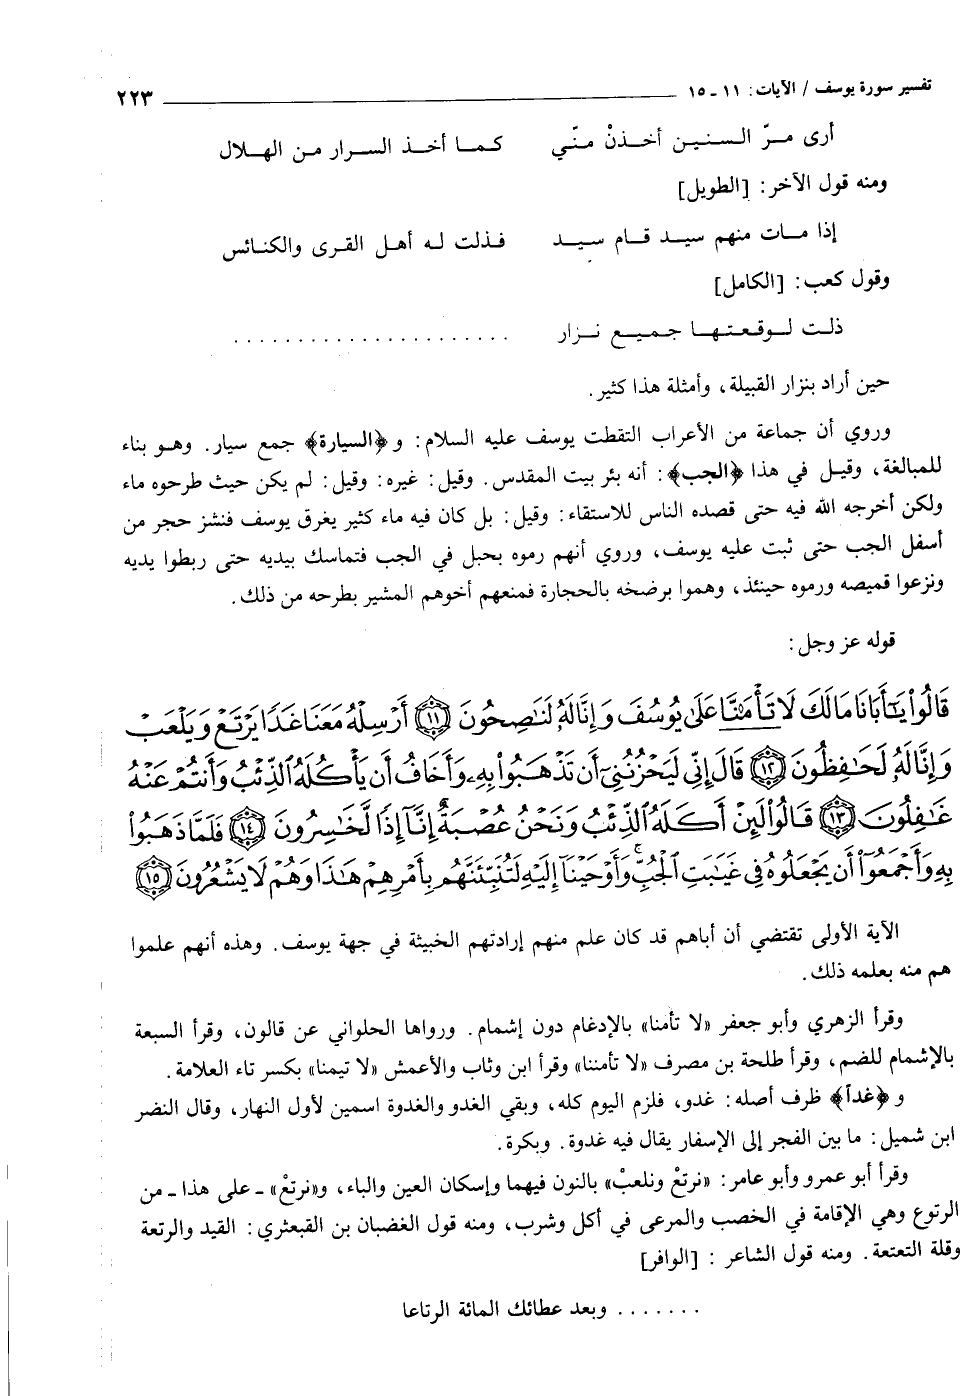 تفسير سورة يوسف / الآيات: ١١ - ١٥ ٢٢٣
أرى مـرّ الـسـنـيـن أخـذنْ مـنّـي كـمـا أخـذ الـسـرار مـن الـهـلال
ومنه قول الآخر: [الطويل]
إذا مـات منهم سيـد قـام سيـد فـذلت لـه أهـل القـرى والكنـائس
وقول كعب: [الكامل]
ذلـت لـوقـعـتـهـا جـمـيـع نـزار . . . . . . . . . . . . . . . . . . . . . .
حين أراد بنزار القبيلة، وأمثلة هذا كثير.
وروي أن جماعة من الأعراب التقطت يوسف عليه السلام: و ﴿السيارة﴾ جمع سيار. وهـو بناء
للمبالغة، وقيـل في هذا ﴿الجب﴾: أنه بئر بيت المقدس. وقيل: غيره: وقيل: لم يكن حيث طرحوه ماء
ولكن أخرجه الله فيه حتى قصده الناس للاستقاء: وقيل: بل كان فيه ماء كثير يغرق يوسف فنشز حجر من
أسفل الجب حتى ثبت عليه يوسف، وروي أنهم رموه بحبل في الجب فتماسك بيديه حتى ربطوا يديه
ونزعوا قميصه ورموه حينئذ، وهموا برضخه بالحجارة فمنعهم أخوهم المشير بطرحه من ذلك.
قوله عز وجل:
قَالُواْ يَٰٓأَبَانَا مَالَكَ لَا تَأْمَ۫نَّا عَلَىٰ يُوسُفَ وَإِنَّا لَهُۥ لَنَٰصِحُونَ ﴿١١﴾ أَرْسِلْهُ مَعَنَا غَدًا يَرْتَعْ وَيَلْعَبْ
وَإِنَّا لَهُۥ لَحَٰفِظُونَ ﴿١٢﴾ قَالَ إِنِّي لَيَحْزُنُنِيٓ أَن تَذْهَبُواْ بِهِۦ وَأَخَافُ أَن يَأْكُلَهُ ٱلذِّئْبُ وَأَنتُمْ عَنْهُ
غَٰفِلُونَ ﴿١٣﴾ قَالُواْ لَئِنْ أَكَلَهُ ٱلذِّئْبُ وَنَحْنُ عُصْبَةٌ إِنَّآ إِذًا لَّخَٰسِرُونَ ﴿١٤﴾ فَلَمَّا ذَهَبُواْ
بِهِۦ وَأَجْمَعُوٓاْ أَن يَجْعَلُوهُ فِي غَيَٰبَتِ ٱلْجُبِّ ۚ وَأَوْحَيْنَآ إِلَيْهِ لَتُنَبِّئَنَّهُم بِأَمْرِهِمْ هَٰذَا وَهُمْ لَا يَشْعُرُونَ ﴿١٥﴾
الآية الأولى تقتضي أن أباهم قد كان علم منهم إرادتهم الخبيثة في جهة يوسف. وهذه أنهم علموا
هم منه بعلمه ذلك.
وقرأ الزهري وأبو جعفر «لا تأمنا» بالإدغام دون إشمام. ورواها الحلواني عن قالون، وقرأ السبعة
بالإشمام للضم، وقرأ طلحة بن مصرف «لا تأمننا» وقرأ ابن وثاب والأعمش «لا تيمنا» بكسر تاء العلامة.
و ﴿غداً﴾ ظرف أصله: غدو، فلزم اليوم كله، وبقي الغدو والغدوة اسمين لأول النهار، وقال النضر
ابن شميل: ما بين الفجر إلى الإسفار يقال فيه غدوة. وبكرة.
وقرأ أبو عمرو وأبو عامر: «نرتعْ ونلعبْ» بالنون فيهما وإسكان العين والباء، و«نرتعْ» ـ على هذا ـ من
الرتوع وهي الإقامة في الخصب والمرعى في أكل وشرب، ومنه قول الغضبان بن القبعثري: القيد والرتعة
وقلة التعتعة. ومنه قول الشاعر : [الوافر]
. . . . . . . وبعد عطائك المائة الرتاعا